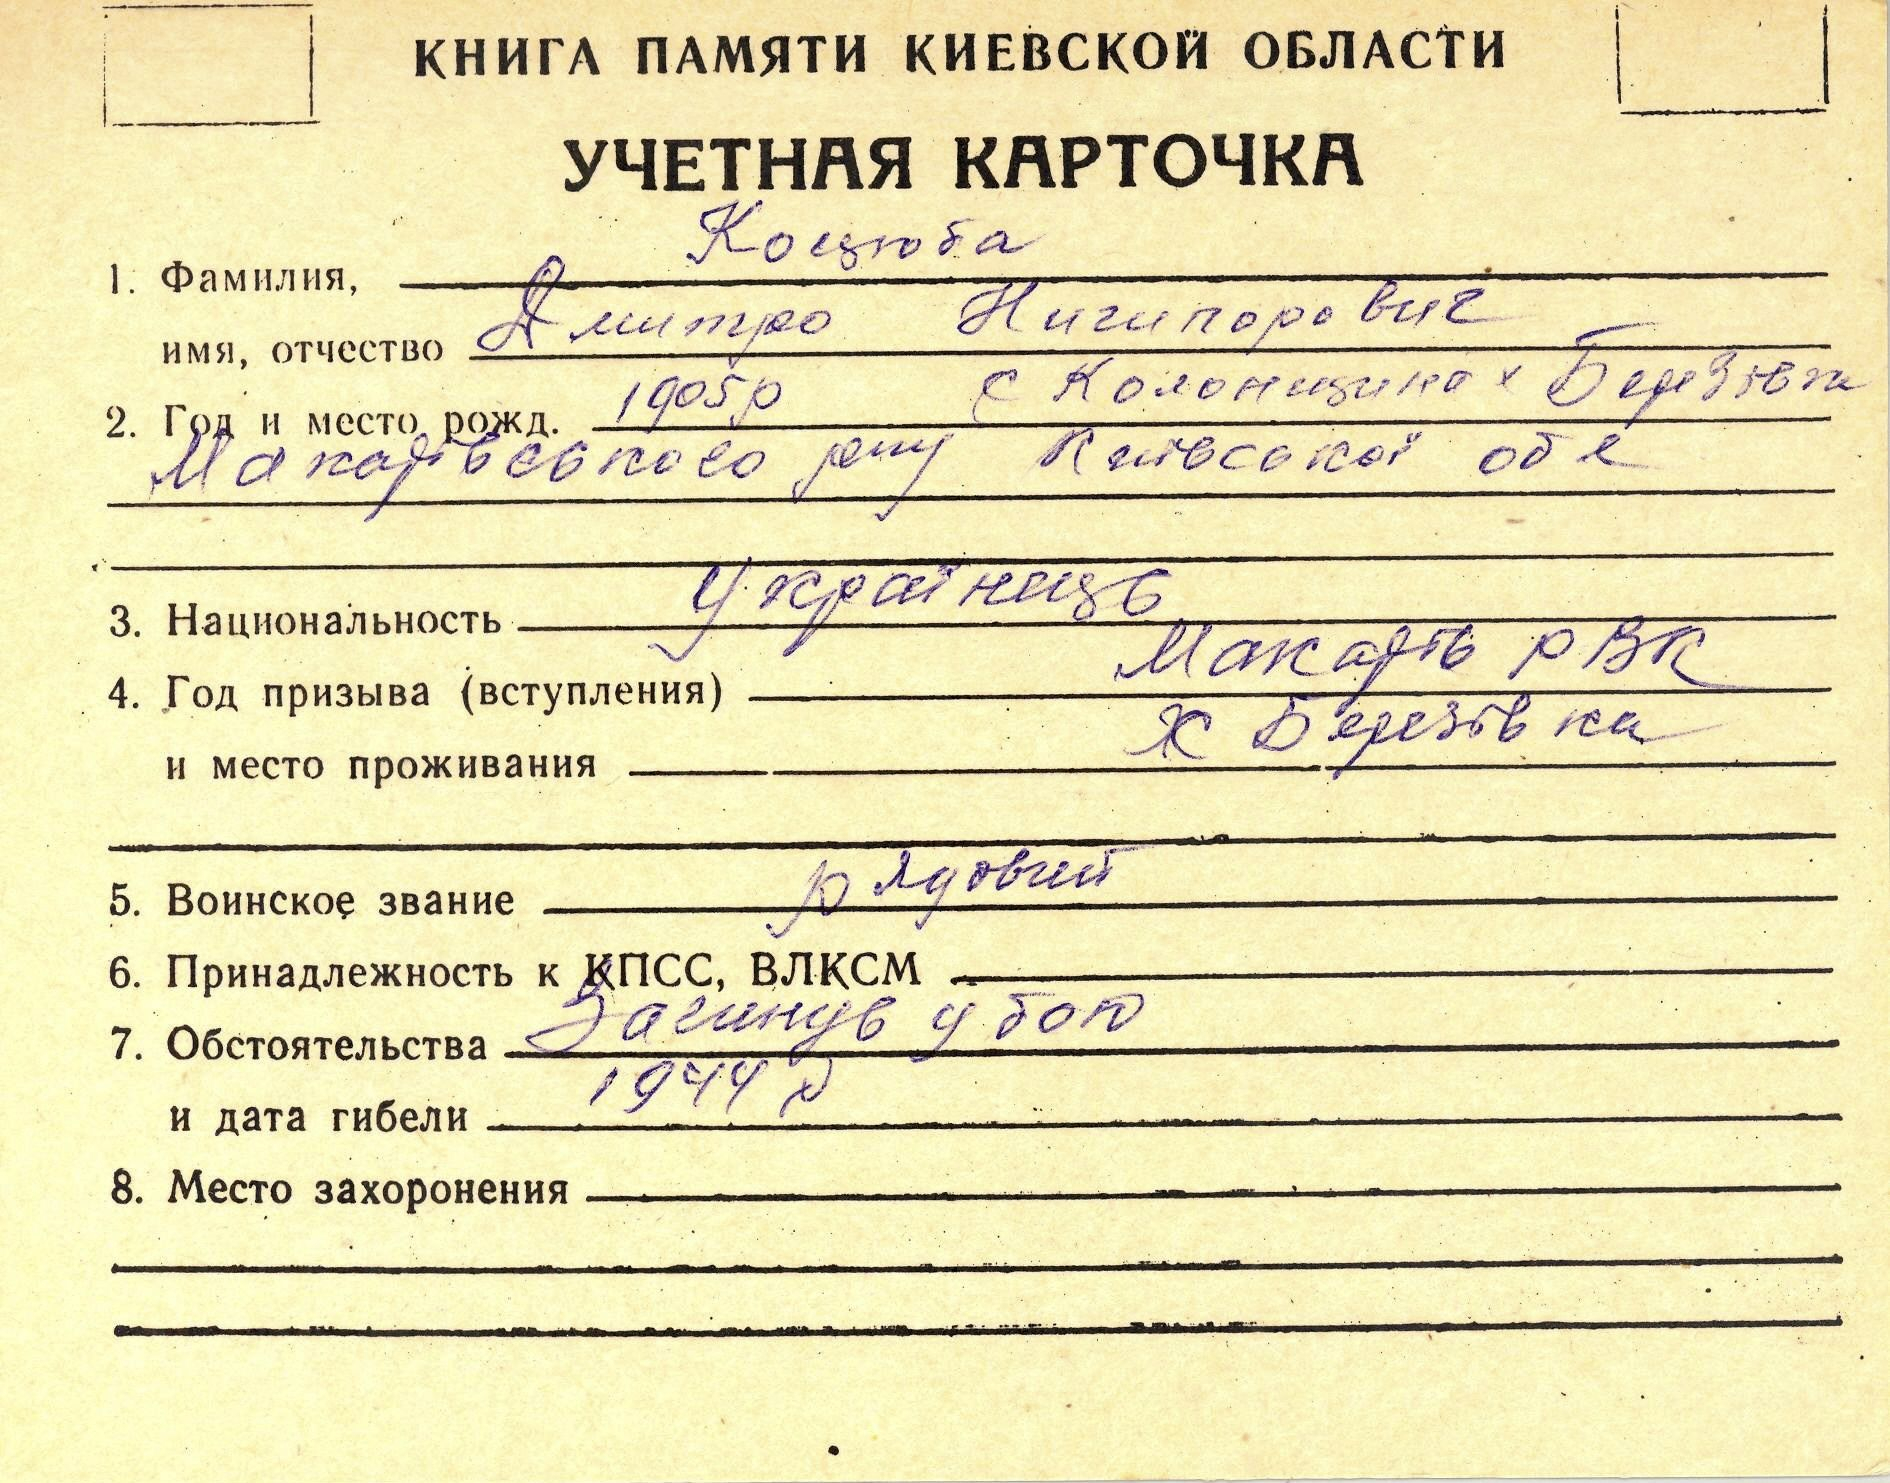 КНИГА ПАМЯТИ КИЕВСКОЙ ОБЛАСТИ
УЧЕТНАЯ КАРТОЧКА
1. Фамилия, Коцюба
имя, отчество Дмитро Ничипорович
2. Год и место рожд. 1905р с Колонщина х Березівка
Макарівського р-ну Київської обл
3. Национальность Українець
4. Год призыва (вступления) Макарів РВК
и место проживания х Березівка
5. Воинское звание рядовий
6. Принадлежность к КПСС, ВЛКСМ
7. Обстоятельства Загинув у бою
и дата гибели 1944 р
8. Место захоронения